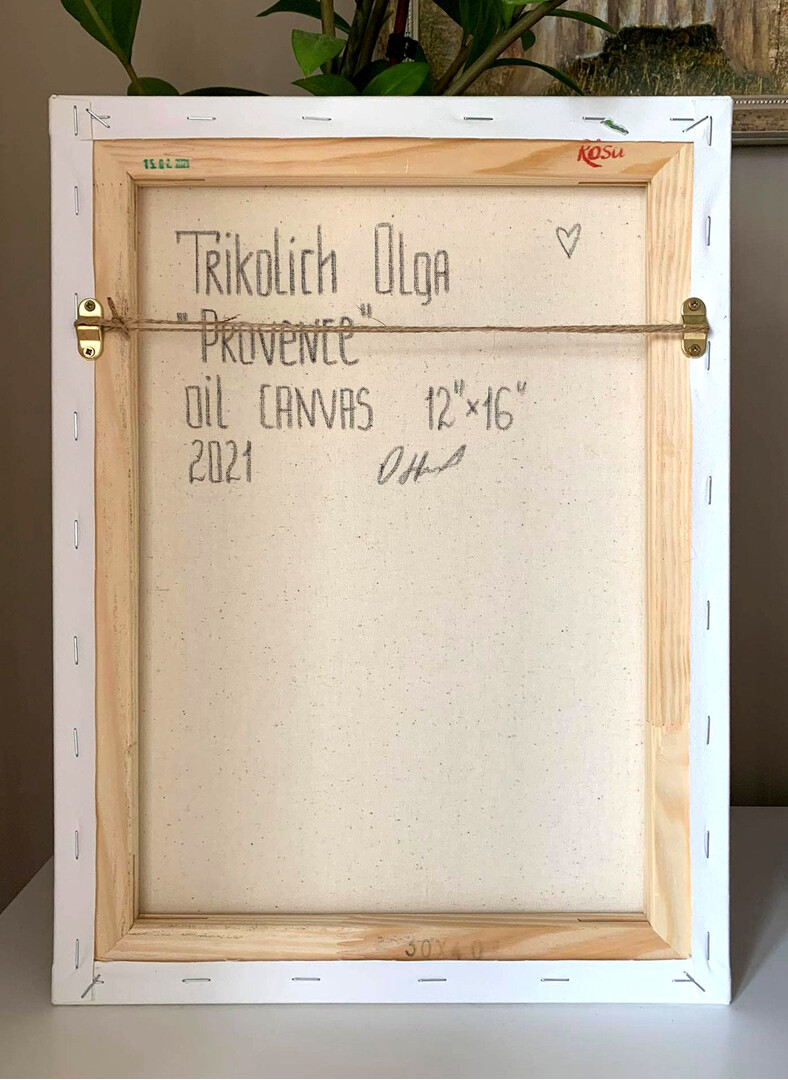 15.02.2021
Rosa
Trikolich Olga
"Provence"
oil canvas 12"×16"
2021
30x40